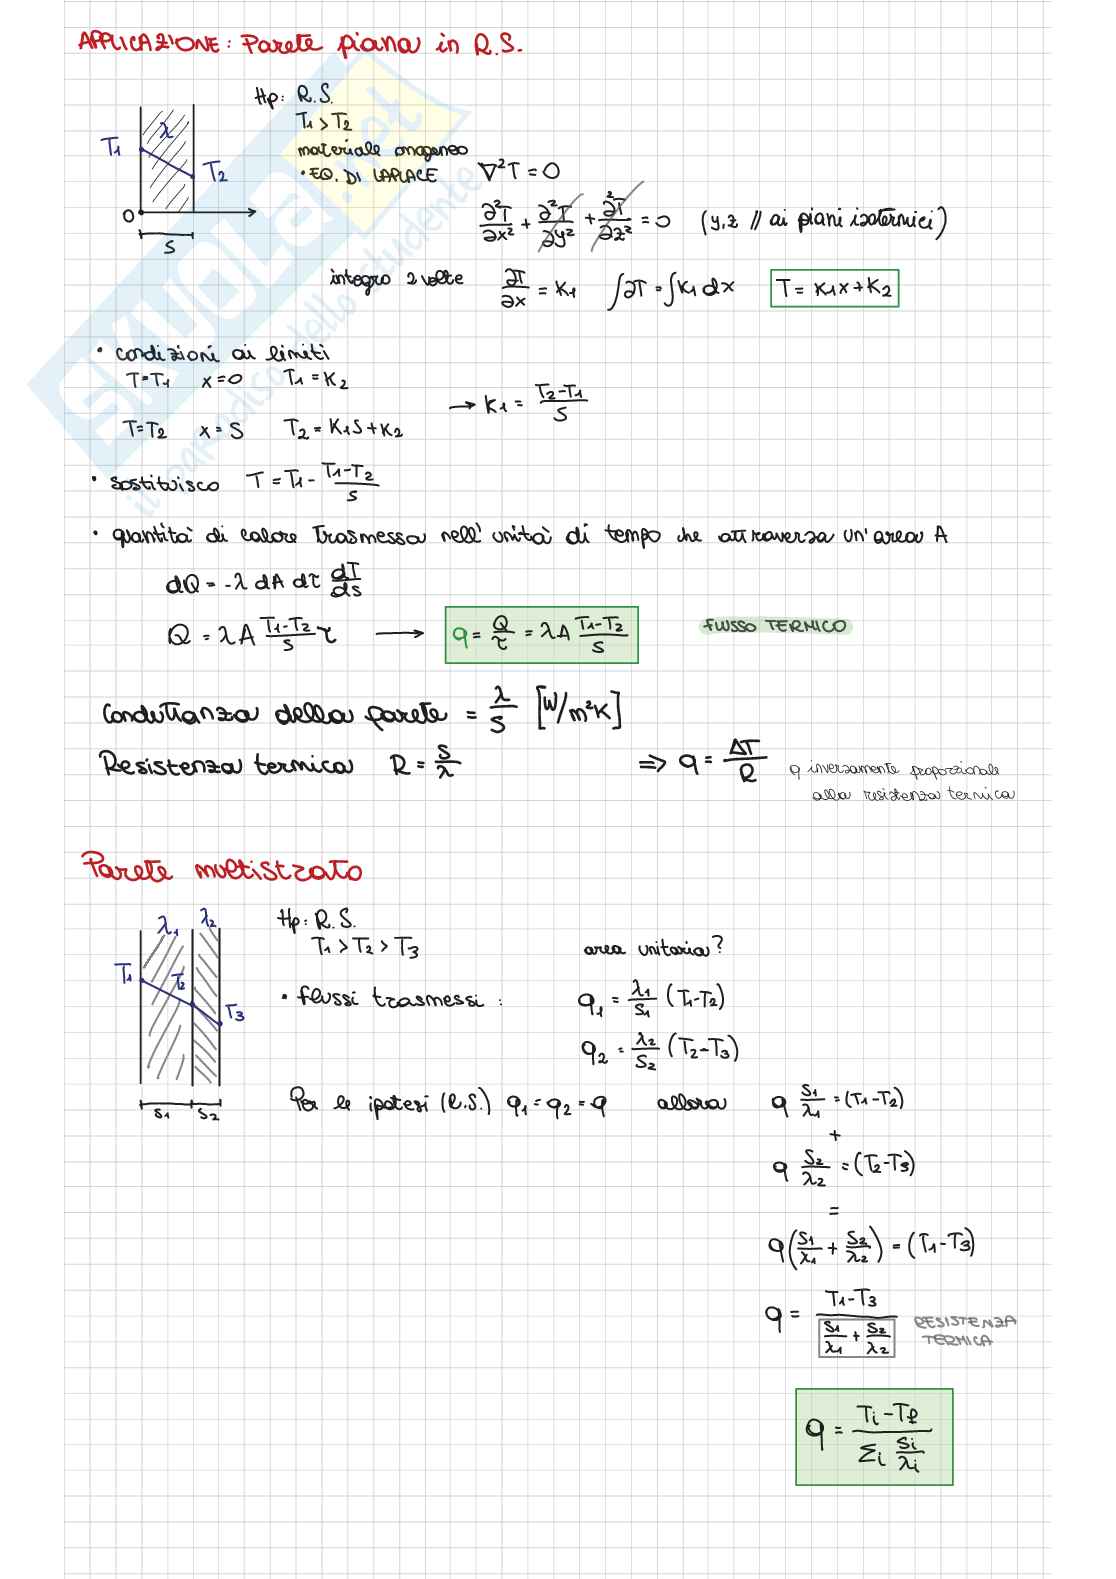 APPLICAZIONE: Parete piana in R.S.
Hp: R.S.
T1 > T2
materiale omogeneo
• EQ. DI LAPLACE ∇²T = 0
∂²T/∂x² + ∂²T/∂y² + ∂²T/∂z² = 0 (y,z // ai piani isotermici)
λ
T1
T2
O
S
integro 2 volte ∂T/∂x = K1 ∫∂T = ∫K1 dx T = K1x + K2
• condizioni ai limiti
T=T1 x=0 T1 = K2
→ K1 = (T2-T1)/S
T=T2 x=S T2 = K1S + K2
• sostituisco T = T1 - (T1-T2)/S
• quantità di calore trasmessa nell'unità di tempo che attraversa un'area A
dQ = -λ dA dτ dT/ds
Q = λ A (T1-T2)/S τ → q = Q/τ = λA (T1-T2)/S FLUSSO TERMICO
Conduttanza della parete = λ/S [W/m²K]
Resistenza termica R = S/λ ⇒ q = ΔT/R q inversamente proporzionale
alla resistenza termica
Parete multistrato
λ1 λ2
T1
T2
T3
S1 S2
Hp: R.S.
T1 > T2 > T3
area unitaria?
• flussi trasmessi : q1 = λ1/S1 (T1-T2)
q2 = λ2/S2 (T2-T3)
Per le ipotesi (R.S.) q1 = q2 = q allora q S1/λ1 = (T1-T2)
+
q S2/λ2 = (T2-T3)
=
q(S1/λ1 + S2/λ2) = (T1-T3)
q = (T1-T3)/(S1/λ1 + S2/λ2) RESISTENZA
TERMICA
q = (Ti-Tf)/(Σi Si/λi)
SKUOLA.net
il paradiso dello studente